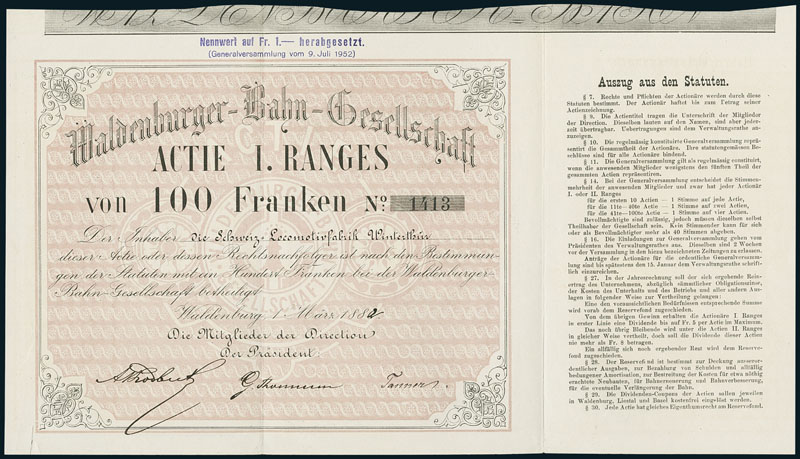 Nennwert auf Fr. 1.— herabgesetzt.
(Generalversammlung vom 9. Juli 1952)
Waldenburger-Bahn-Gesellschaft
ACTIE I. RANGES
von 100 Franken No. 1413
Der Inhaber die Schweiz. Locomotivfabrik Winterthur
dieser Actie oder dessen Rechtsnachfolger ist nach den Bestimmun-
gen der Statuten mit ein Hundert Franken bei der Waldenburger-
Bahn-Gesellschaft betheiligt.
Waldenburg, 1 März 1882
Die Mitglieder der Direction
Der Präsident
Tanner.
Auszug aus den Statuten.
§ 7. Rechte und Pflichten der Actionäre werden durch diese
Statuten bestimmt. Der Actionär haftet bis zum Betrag seiner
Actienzeichnung.
§ 9. Die Actientitel tragen die Unterschrift der Mitglieder
der Direction. Dieselben lauten auf den Namen, sind aber jeder-
zeit übertragbar. Uebertragungen sind dem Verwaltungsrathe an-
zuzeigen.
§ 10. Die regelmässig konstituirte Generalversammlung reprä-
sentirt die Gesammtheit der Actionäre. Ihre statutengemässen Be-
schlüsse sind für alle Actionäre bindend.
§ 11. Die Generalversammlung gilt als regelmässig constituirt,
wenn die anwesenden Mitglieder wenigstens den fünften Theil der
gesammten Actien repräsentiren.
§ 14. Bei der Generalversammlung entscheidet die Stimmen-
mehrheit der anwesenden Mitglieder und zwar hat jeder Actionär
I. oder II. Ranges
für die ersten 10 Actien — 1 Stimme auf jede Actie,
für die 11te—40te Actie — 1 Stimme auf zwei Actien,
für die 41te—100te Actie — 1 Stimme auf vier Actien.
Bevollmächtigte sind zulässig, jedoch müssen dieselben selbst
Theilhaber der Gesellschaft sein. Kein Stimmender kann für sich
oder als Bevollmächtigter mehr als 40 Stimmen abgeben.
§ 16. Die Einladungen zur Generalversammlung gehen vom
Präsidenten des Verwaltungsrathes aus. Dieselben sind 2 Wochen
vor der Versammlung in den hiezu bezeichneten Zeitungen zu erlassen.
Anträge der Actionäre für die ordentliche Generalversamm-
lung sind bis spätestens den 15. Januar dem Verwaltungsrathe schrift-
lich einzureichen.
§ 27. In der Jahresrechnung soll der sich ergebende Reiner-
trag des Unternehmens, abzüglich sämmtlicher Obligationszinse,
der Kosten des Unterhalts und des Betriebs und aller andern Aus-
lagen in folgender Weise zur Vertheilung gelangen:
Eine den voraussichtlichen Bedürfnissen entsprechende Summe
wird vorab dem Reservefond zugeschieden.
Von dem übrigen Gewinn erhalten die Actionäre I Ranges
in erster Linie eine Dividende bis auf Fr. 5 per Actie im Maximum.
Das noch übrig Bleibende wird unter die Actien II. Ranges
in gleicher Weise vertheilt, doch soll die Dividende dieser Actien
nie mehr als Fr. 8 betragen.
Ein allfällig sich noch ergebender Rest wird dem Reserve-
fond zugeschieden.
§ 28. Der Reservefond ist bestimmt zur Deckung ausseror-
dentlicher Ausgaben, zur Bezahlung von Schulden und allfällig
bedungener Amortisation, zur Bestreitung der Kosten für etwa nöthig
erachtete Neubauten, für Bahnerneuerung und Bahnverbesserung,
für die eventuelle Verlängerung der Bahn.
§ 29. Die Dividenden-Coupons der Actien sollen jeweilen
in Waldenburg, Liestal und Basel kostenfrei eingelöst werden.
§ 30. Jede Actie hat gleiches Eigenthumsrecht am Reservefond.